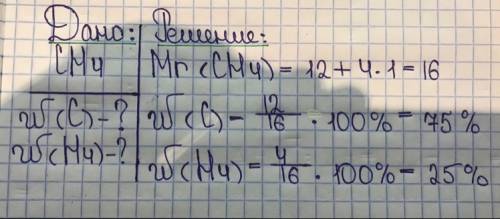 Дано: Решение:
CH4 Mr (CH4) = 12 + 4 · 1 = 16
W (C) - ? W (C) - 12/16 · 100% = 75%
W (H4) - ? W (H4) = 4/16 · 100% = 25%